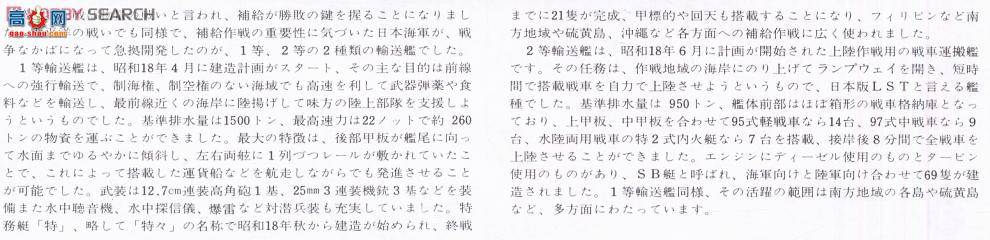 HOBBY SEARCH
高高模型
いと言われ、補給が勝敗の鍵を握ることになりまし
の戦いでも同様で、補給作戦の重要性に気づいた日本海軍が、戦
争なかばになって急拠開発したのが、1等、2等の2種類の輸送艦でした。
1等輸送艦は、昭和18年4月に建造計画がスタート、その主な目的は前線
への強行輸送で、制海権、制空権のない海域でも高速を利して武器弾薬や食
料などを輸送し、最前線近くの海岸に陸揚げして味方の陸上部隊を支援しよ
うというものでした。基準排水量は1500トン、最高速力は22ノットで約 260
トンの物資を運ぶことができました。最大の特徴は、後部甲板が艦尾に向っ
て水面までゆるやかに傾斜し、左右両舷に1列づつレールが敷かれていたこ
とで、これによって搭載した運貨船などを航走しながらでも発進させること
が可能でした。武装は12.7cm連装高角砲1基、25mm3連装機銃3基などを装
備また水中聴音機、水中探信儀、爆雷など対潜兵装も充実していました。特
務艇「特」、略して「特々」の名称で昭和18年秋から建造が始められ、終戦
までに21隻が完成、甲標的や回天も搭載することになり、フィリピンなど南
方地域や硫黄島、沖縄など各方面への補給作戦に広く使われました。
2等輸送艦は、昭和18年6月に計画が開始された上陸作戦用の戦車運搬艦
です。その任務は、作戦地域の海岸にのり上げてランプウェイを開き、短時
間で搭載戦車を自力で上陸させようというもので、日本版LSTと言える艦
種でした。基準排水量は 950トン、艦体前部はほぼ箱形の戦車格納庫となっ
ており、上甲板、中甲板を合わせて95式軽戦車なら14台、97式中戦車なら9
台、水陸両用戦車の特2式内火艇なら7台を搭載、接岸後8分間で全戦車を
上陸させることができました。エンジンにディーゼル使用のものとタービン
使用のものがあり、SB艇と呼ばれ、海軍向けと陸軍向け合わせて69隻が建
造されました。1等輸送艦同様、その活躍の範囲は南方地域の各島や硫黄島
など、多方面にわたっています。